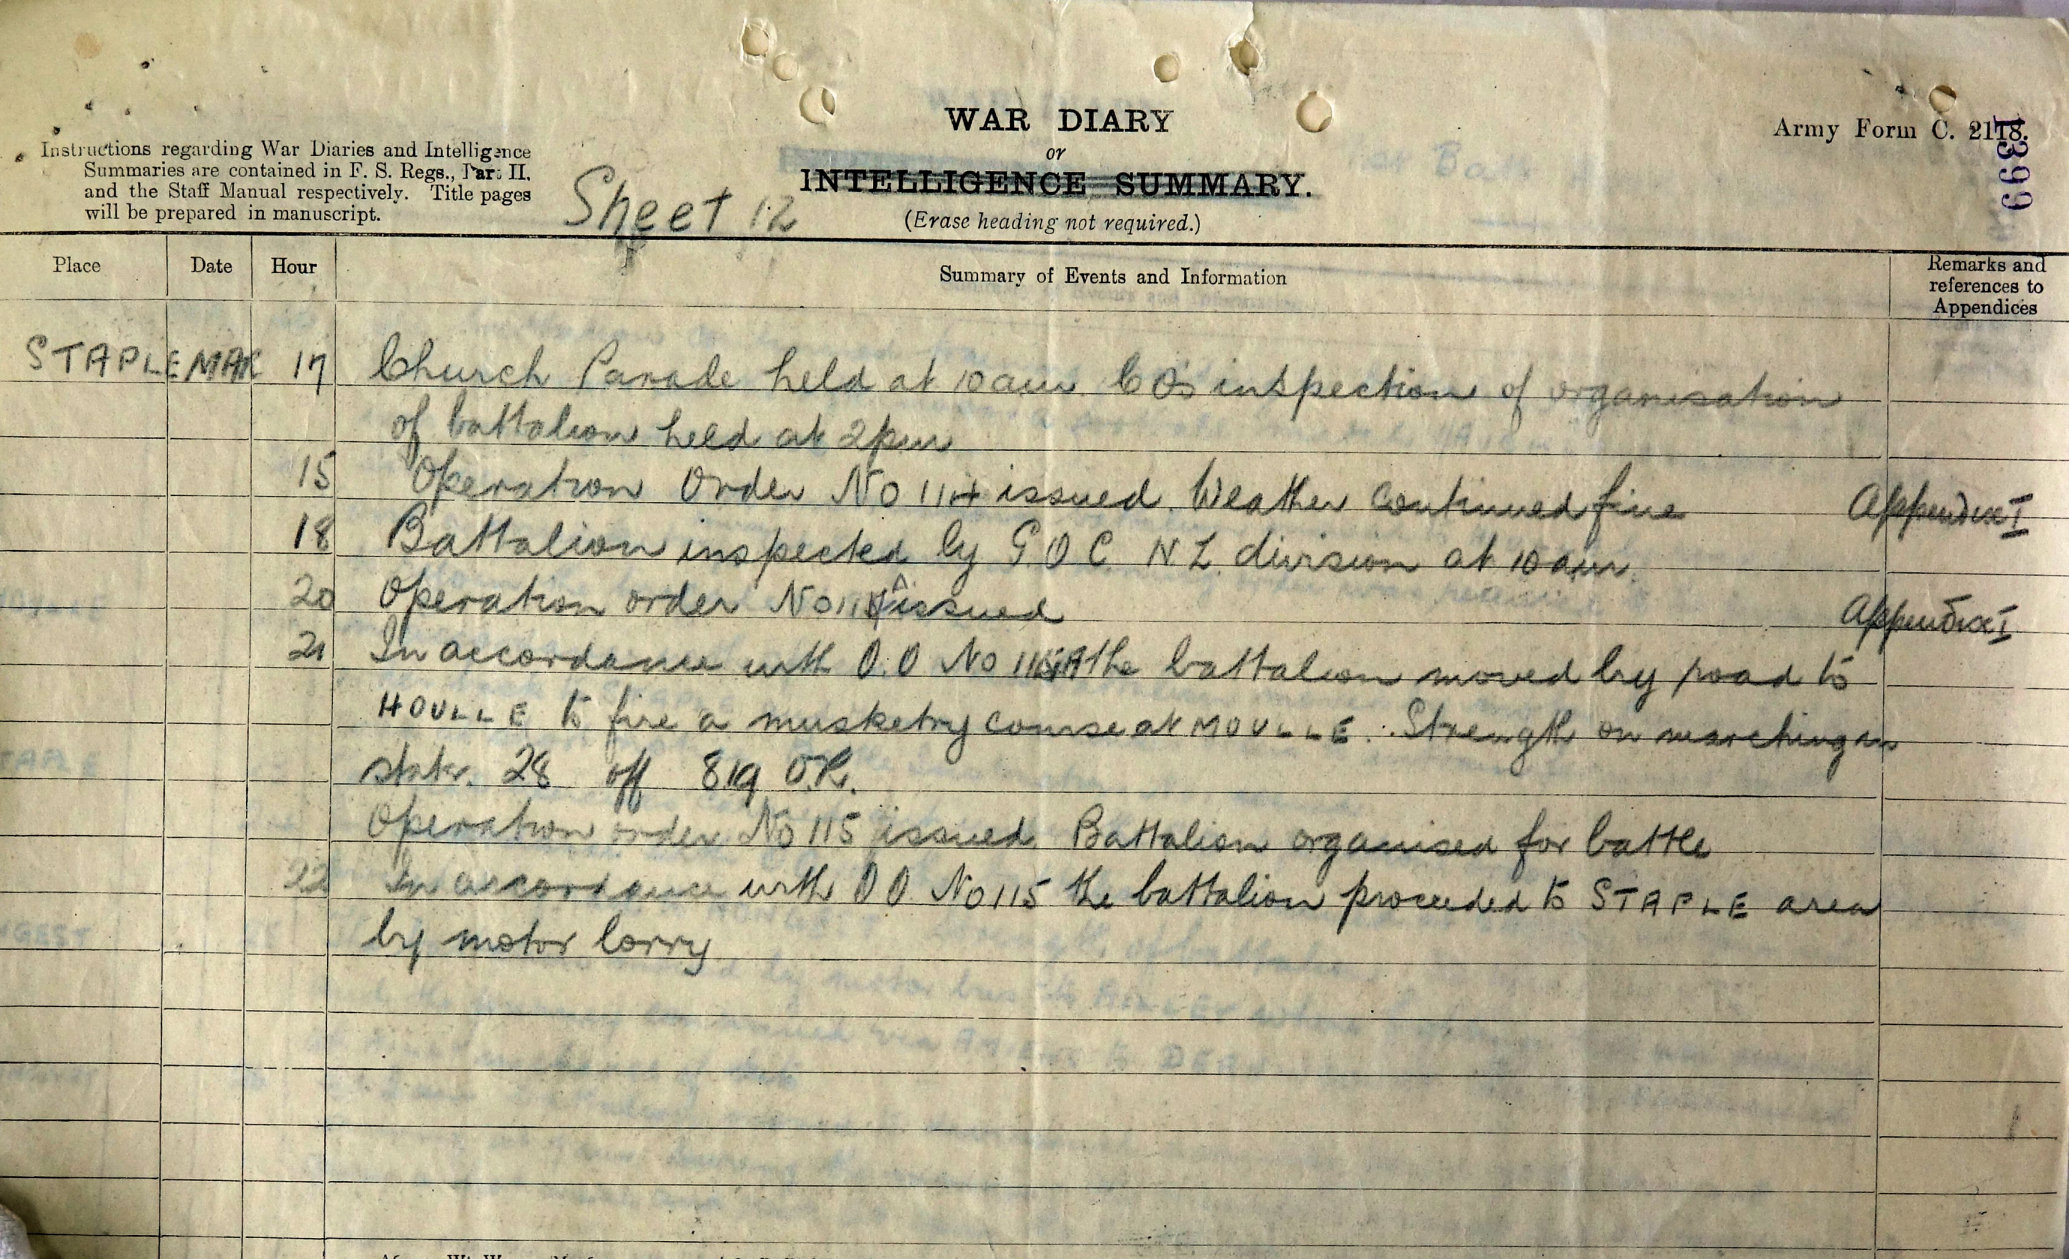 WAR DIARY
or
INTELLIGENCE SUMMARY.
(Erase heading not required.)
Army Form C. 2118.
13999
Instructions regarding War Diaries and Intelligence
Summaries are contained in F. S. Regs., Part II.
and the Staff Manual respectively. Title pages
will be prepared in manuscript.
Sheet 12
Place Date Hour Summary of Events and Information Remarks and
references to
Appendices
STAPLE MAR 17 Church Parade held at 10 am. C O's inspection of organisation
of battalion held at 2pm
15 Operation Order No 114 issued. Weather continued fine Appendix I
18 Battalion inspected by G.O.C. N Z. division at 10 am.
20 Operation order No issued Appendix I
21 In accordance with O.O No the battalion moved by road to
HOULLE to fire a musketry course at MOULLE. Strength on marching in
state. 28 off 819 O.R.
Operation order No 115 issued. Battalion organised for battle
22 In accordance with O O No 115 the battalion proceeded to STAPLE area
by motor lorry